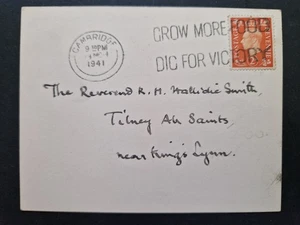 CAMBRIDGE
9 PM
1941
GROW MORE FOOD
DIG FOR VICTORY
The Reverend R. H. Wallidie Smith,
Tilney All Saints,
near King's Lynn.